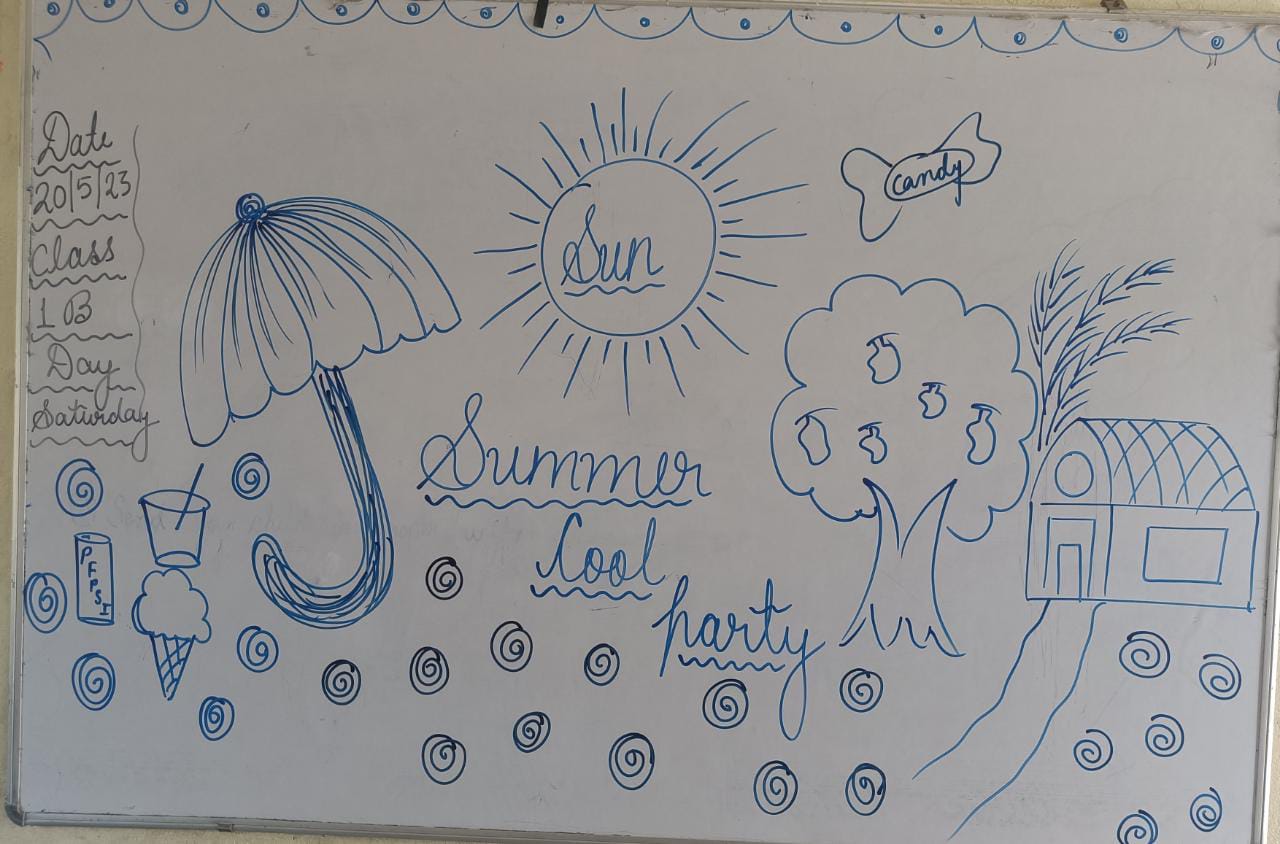 Date
20/5/23
Class
1 B
Day
Saturday
Sun
candy
Summer
Cool
party
PEPSI